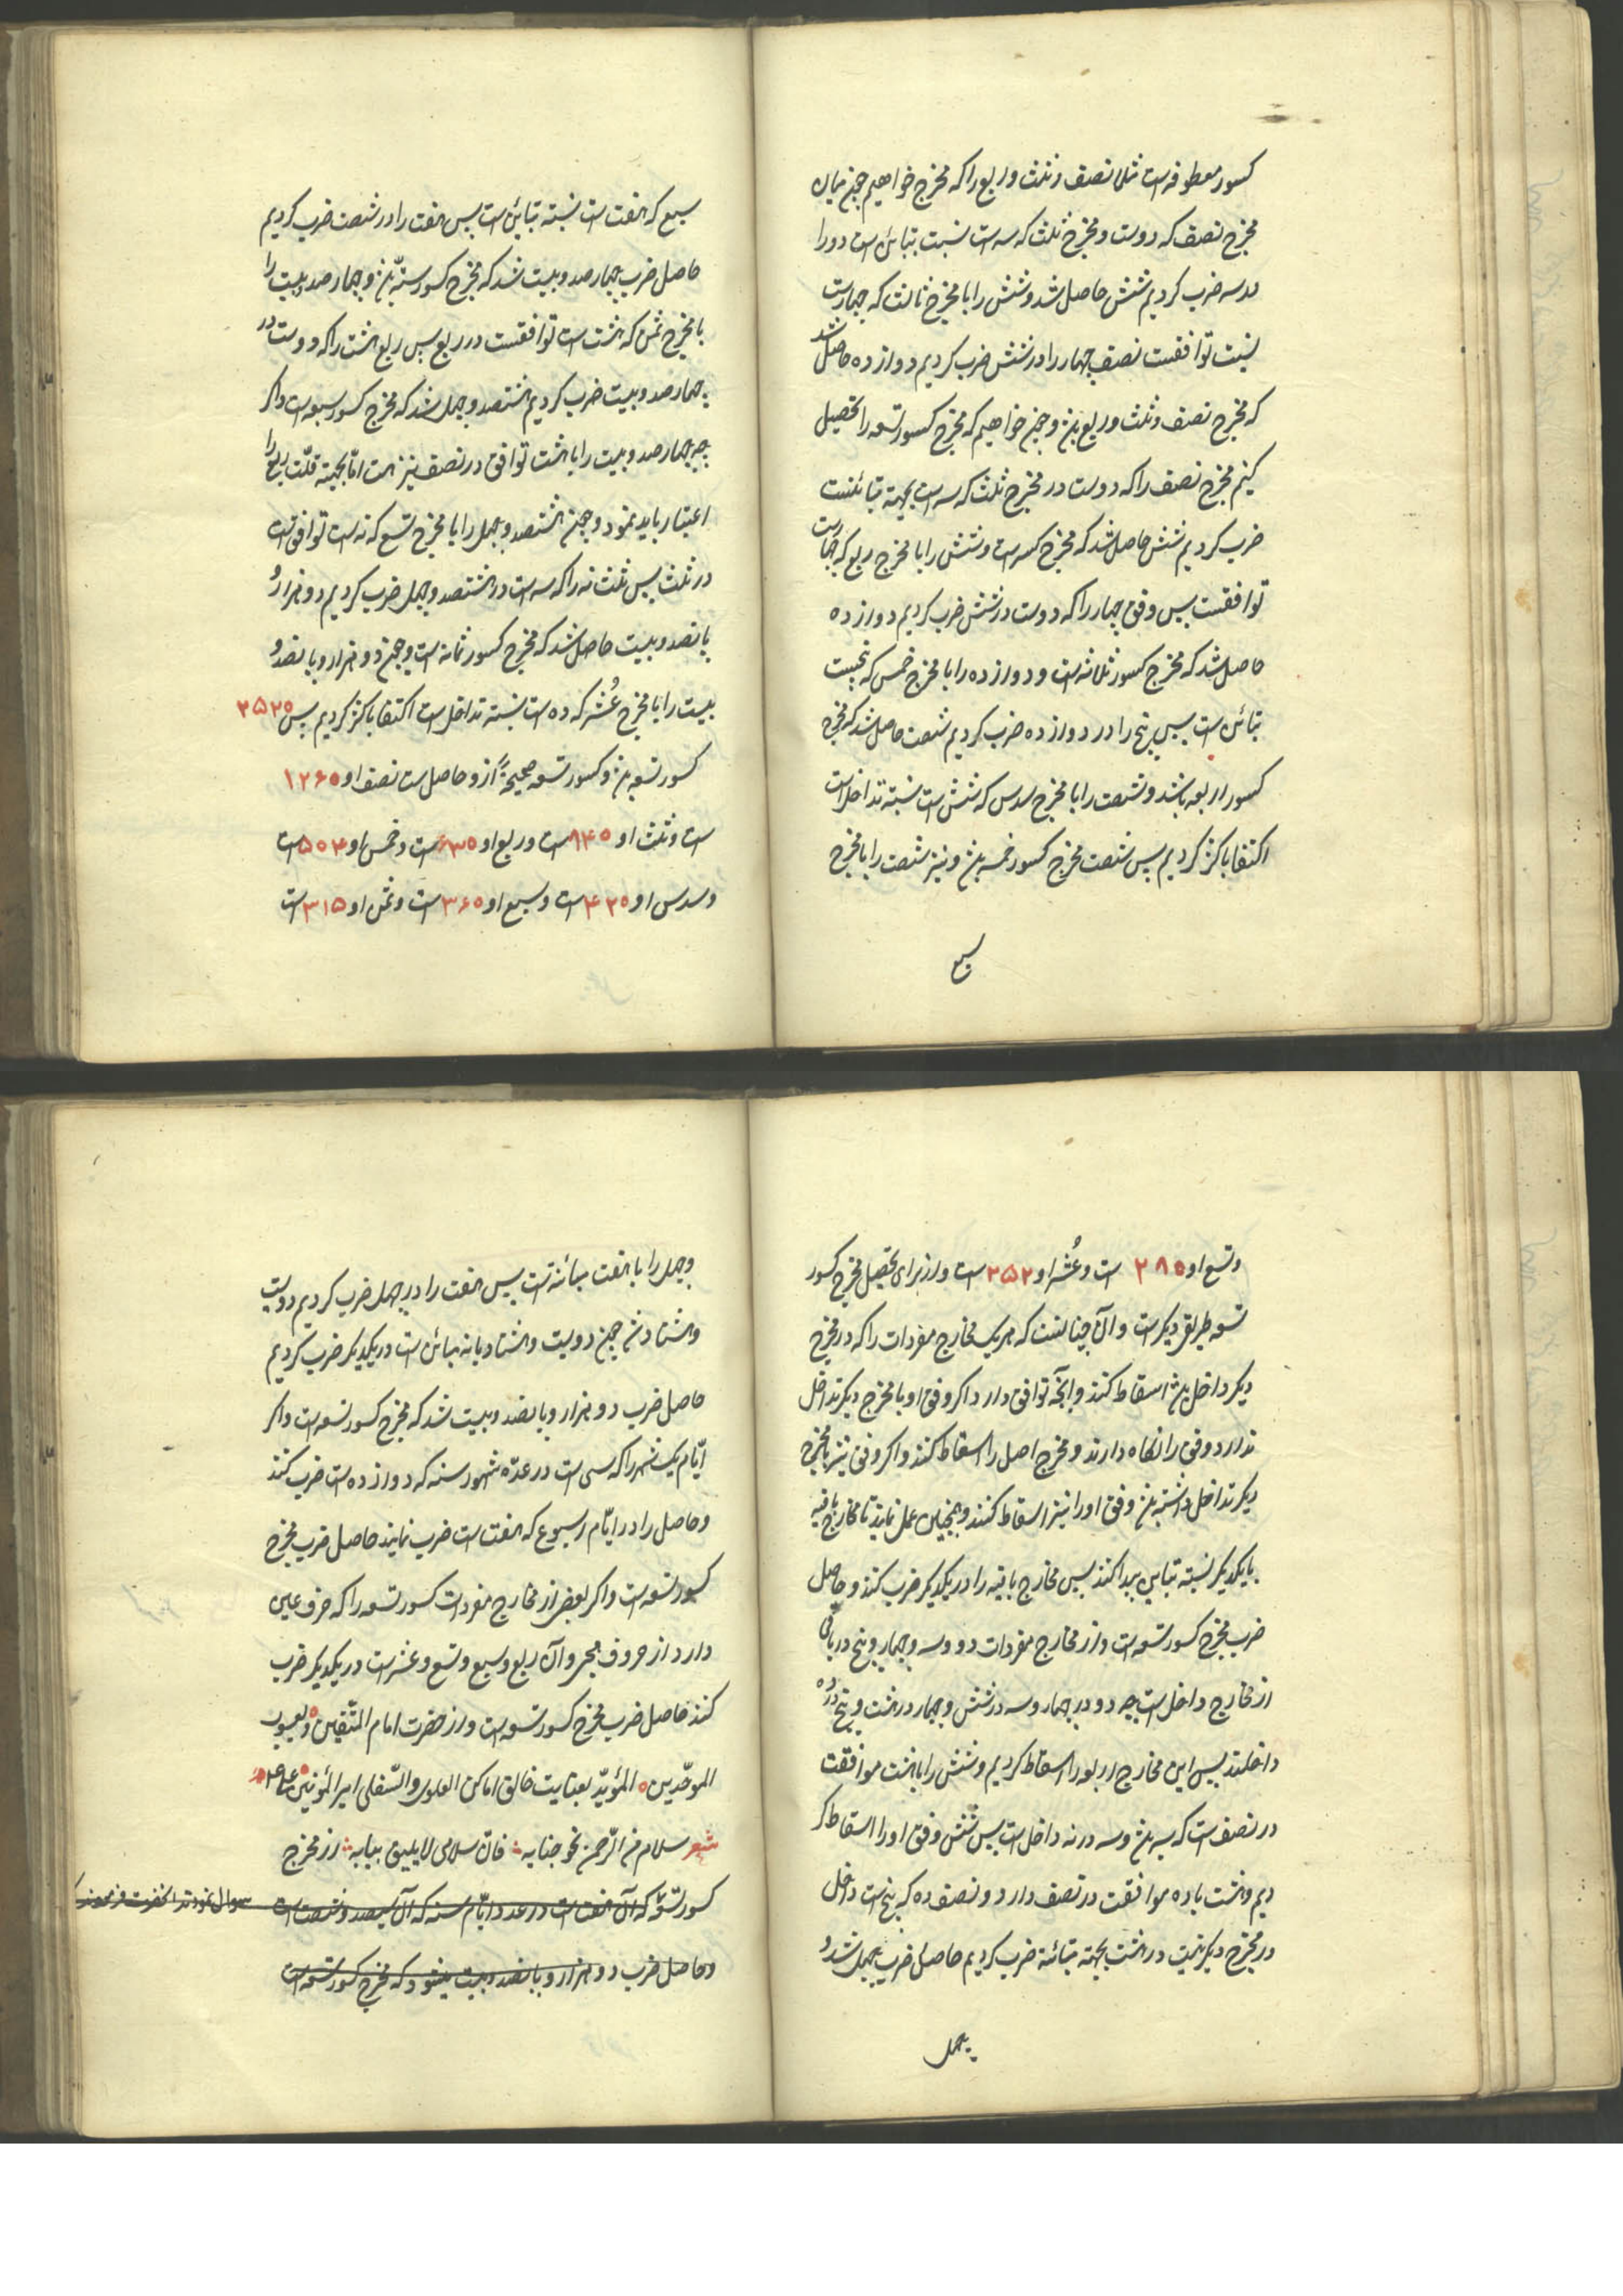 کسور معطوفه است مثلا نصف و ثلث و ربع را که مخرج خواهیم چون میان
مخرج نصف که دوست و مخرج ثلث که سه است نسبت تباین است دو را
در سه ضرب کردیم شش حاصل شد و شش را با مخرج ثالث که چهارست
نسبت توافقست نصف چهار را در شش ضرب کردیم دوازده حاصل شد
که مخرج نصف و ثلث و ربع بود و چون خواهیم که مخرج کسور تسعه را تحصیل
کنیم مخرج نصف را که دوست در مخرج ثلث که سه است بجهة تباینست
ضرب کردیم شش حاصل شد که مخرج کسه است و شش را با مخرج ربع که چهارست
توافقست پس وفق چهار را که دوست در شش ضرب کردیم دوازده
حاصل شد که مخرج کسور ثلاثه است و دوازده را با مخرج خمس که پنجست
تباین است پس پنج را در دوازده ضرب کردیم شصت حاصل شد که مخرج
کسور اربعه باشد و شصت را با مخرج سدس که شش است نسبة تداخل است
اکتفا باکثر کردیم پس شصت مخرج کسور خمسه بود و نیز شصت را با مخرج
سبع
سبع که هفت است نسبة تباین است پس هفت را در شصت ضرب کردیم
حاصل ضرب چهار صد و بیست شد که مخرج کسور ستّه بود و چهار صد و بیست را
با مخرج ثمن که هشت است توافقست در ربع پس ربع هشت را که دوست در
چهار صد و بیست ضرب کردیم هشتصد و چهل شد که مخرج کسور سبعه است و اکر
چه چهار صد و بیست را با هشت توافق در نصف نیز هست امّا بجهة قلّت ربع را
اعتبار باید نمود و چون هشتصد و چهل را با مخرج تسع که نه است توافق است
در ثلث پس ثلث نه را که سه است در هشتصد و چهل ضرب کردیم دو هزار و
پانصد و بیست حاصل شد که مخرج کسور ثمانه است و چون دو هزار و پانصد و
بیست را با مخرج عُشر که ده است نسبة تداخل است اکتفا باکثر کردیم پس ۲۵۲۰
کسور تسعه بود و کسور تسعه صحیحةً ازو حاصل است نصف او ۱۲۶۰
است و ثلث او ۸۴۰ است و ربع او ۶۳۰ است و خمس او ۵۰۴ است
و سدس او ۴۲۰ است و سبع او ۳۶۰ است و ثمن او ۳۱۵ است
و تسع او ۲۸۰ است و عُشر او ۲۵۲ است و از برای تحصیل مخرج کسور
تسعه طریق دیکر است و آن چنانست که هر یک مخارج مفردات را که در مخرج
دیکر داخل بود اسقاط کنند و آنچه توافق دارد اکر وفق او با مخرج دیکر تداخل
ندارد وفق را نکاه دارند و مخرج اصل را اسقاط کنند و اکر وفق نیز با مخرج
دیکر تداخل داشته بود وفق او را نیز اسقاط کنند و همچنین عمل نمایند تا مخارج باقیه
با یکدیکر نسبة تباین پیدا کنند پس مخارج باقیه را در یکدیکر ضرب کنند و حاصل
ضرب مخرج کسور تسعه است و از مخارج مفردات دو و سه و چهار و پنج در باقی
از مخارج داخل است چه دو در چهار و سه در شش و چهار در هشت و پنج در ده
داخلند پس این مخارج اربعه را اسقاط کردیم و شش را با هشت موافقت
در نصف است که سه بود و سه در نه داخل است پس شش و وفق او را اسقاط کر
دیم و هشت با ده موافقت در نصف دارد و نصف ده که پنج است داخل
در مخرج دیکر نیست در هشت بجهة تباینه ضرب کردیم حاصل ضرب چهل شد و
چهل
و چهل را با هفت مباینة است پس هفت را در چهل ضرب کردیم دویست
و هشتاد شد چون دویست و هشتاد با نه مباین است در یکدیکر ضرب کردیم
حاصل ضرب دو هزار و پانصد و بیست شد که مخرج کسور تسعه است و اکر
ایّام یک شهر را که سی است در عدّه شهور سنه که دوازده است ضرب کنند
و حاصل را در ایّام اسبوع که هفت است ضرب نمایند حاصل ضرب مخرج
کسور تسعه است و اکر بعضی از مخارج مفردات کسور تسعه را که حرف عین
دارد از حروف هجی و آن ربع و سبع و تسع و عشر است در یکدیکر ضرب
کنند حاصل ضرب مخرج کسور تسعه است و از حضرت امام المتّقین و یعسوب
الموحّدین المؤیّد بعنایت خالق اماکن العلوی و السّفلی امیر المؤمنین علی
شعر سلام من الرّحمن نحو جنابه فانّ سلامی لا یلیق ببابه از مخرج
کسور تسعه که آن هفت است در عدد ایّام سنه که آن سیصد و شصت است سوال نمودند آنحضرت فرمودند
و حاصل ضرب دو هزار و پانصد و بیست میشود که مخرج کسور تسعه است